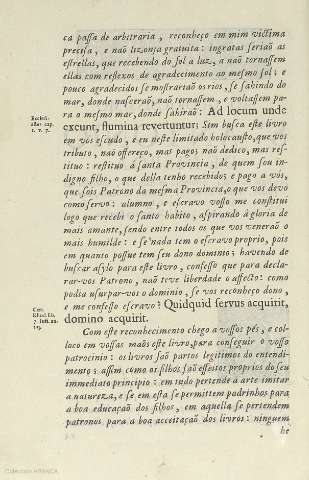 ca passa de arbitraria, reconheço em mim victima
precisa, e naõ lizonja gratuita: ingratas seriaõ as
estrellas, que recebendo do sol a luz, a naõ tornassem
ellas com reflexos de agradecimento ao mesmo sol; e
pouco agradecidos se mostrariaõ os rios, se sahindo do
mar, donde nasceraõ, naõ tornassem, e voltassem pa-
ra o mesmo mar, donde sahiraõ: Ad locum unde
Ecclesi-
astes cap.
1. v. 7.
exeunt, flumina revertuntur: Sim busca este livro
em vós escudo, e eu neste limitado holocausto, que vos
tributo, naõ offereço, mas pago; naõ dedico, mas res-
tituo: restituo á santa Provincia, de quem sou in-
digno filho, o que della tenho recebido; e pago a vós,
que sois Patrono da mesma Provincia, o que vos devo
como servo: alumno, e escravo vosso me constitui
logo que recebi o santo habito, aspirando á gloria de
mais amante, sendo entre todos os que vos veneraõ o
mais humilde: e se nada tem o escravo proprio, pois
em quanto possue tem seu dono dominio; havendo de
buscar asylo para este livro, confesso que para decla-
rar-vos Patrono, naõ teve liberdade o affecto: como
podia usurpar-vos o dominio, se vos reconheço dono,
e me confesso escravo? Quidquid servus acquirit,
domino acquirit.
Com este reconhecimento chego a vossos pés, e col-
loco em vossas maõs este livro, para conseguir o vosso
patrocinio: os livros saõ partos legitimos do entendi-
mento; assim como os filhos saõ effeitos proprios do seu
immediato principio: em tudo pertende a arte imitar
a natureza, e se em esta se permittem padrinhos para
a boa educaçaõ dos filhos, em aquella se pertendem
patronos para a boa acceitaçaõ dos livros: ninguem
he